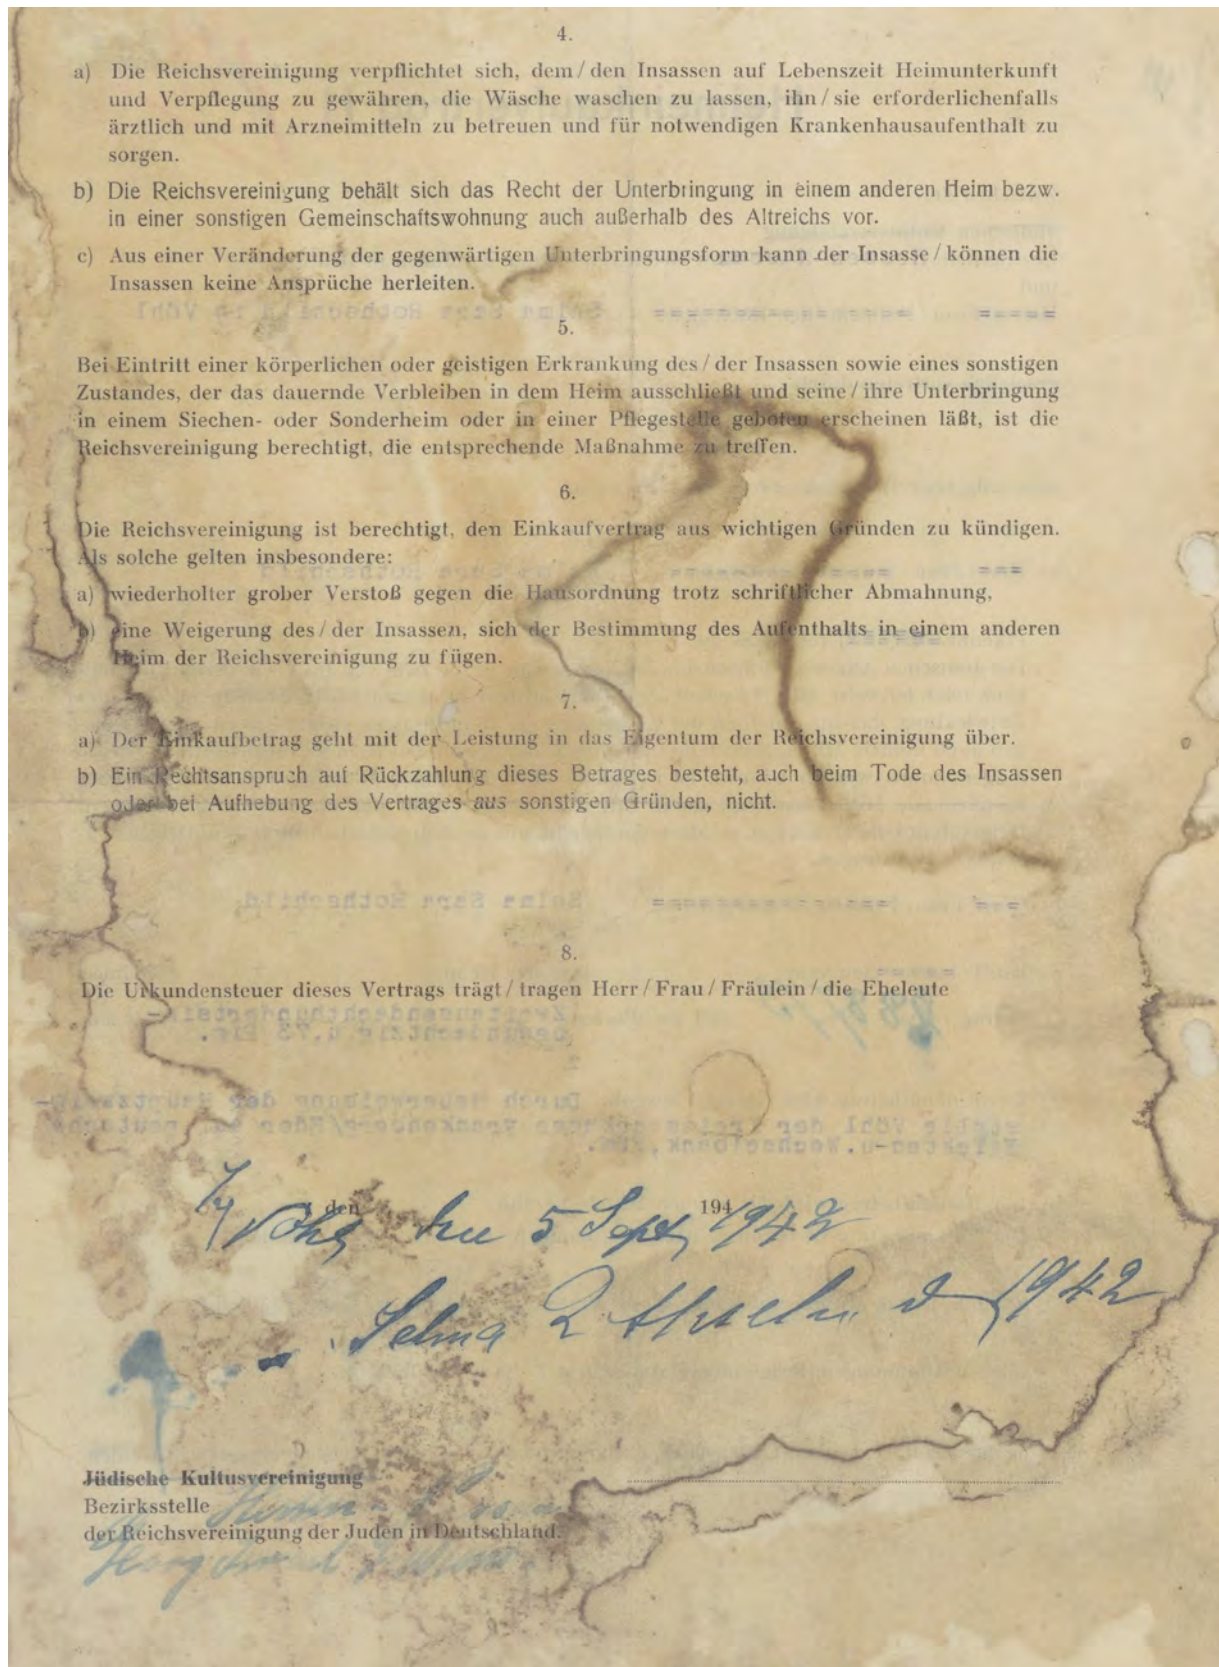 4.
a) Die Reichsvereinigung verpflichtet sich, dem/den Insassen auf Lebenszeit Heimunterkunft
und Verpflegung zu gewähren, die Wäsche waschen zu lassen, ihn/sie erforderlichenfalls
ärztlich und mit Arzneimitteln zu betreuen und für notwendigen Krankenhausaufenthalt zu
sorgen.
b) Die Reichsvereinigung behält sich das Recht der Unterbringung in einem anderen Heim bezw.
in einer sonstigen Gemeinschaftswohnung auch außerhalb des Altreichs vor.
c) Aus einer Veränderung der gegenwärtigen Unterbringungsform kann der Insasse/können die
Insassen keine Ansprüche herleiten.
5.
Bei Eintritt einer körperlichen oder geistigen Erkrankung des/der Insassen sowie eines sonstigen
Zustandes, der das dauernde Verbleiben in dem Heim ausschließt und seine/ihre Unterbringung
in einem Siechen- oder Sonderheim oder in einer Pflegestelle geboten erscheinen läßt, ist die
Reichsvereinigung berechtigt, die entsprechende Maßnahme zu treffen.
6.
Die Reichsvereinigung ist berechtigt, den Einkaufvertrag aus wichtigen Gründen zu kündigen.
Als solche gelten insbesondere:
a) wiederholter grober Verstoß gegen die Hausordnung trotz schriftlicher Abmahnung,
b) eine Weigerung des/der Insassen, sich der Bestimmung des Aufenthalts in einem anderen
Heim der Reichsvereinigung zu fügen.
7.
a) Der Einkaufbetrag geht mit der Leistung in das Eigentum der Reichsvereinigung über.
b) Ein Rechtsanspruch auf Rückzahlung dieses Betrages besteht, auch beim Tode des Insassen
oder bei Aufhebung des Vertrages aus sonstigen Gründen, nicht.
8.
Die Urkundensteuer dieses Vertrags trägt/tragen Herr/Frau/Fräulein/die Eheleute
, den 194
Vöhl den 5 Sept 1942
Selma 1942
Jüdische Kultusvereinigung
Bezirksstelle
der Reichsvereinigung der Juden in Deutschland.